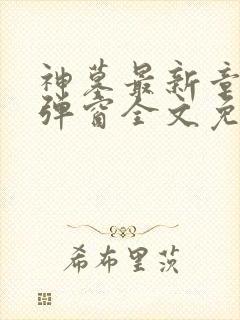 神墓最新章
弹窗全文免
希布里茨